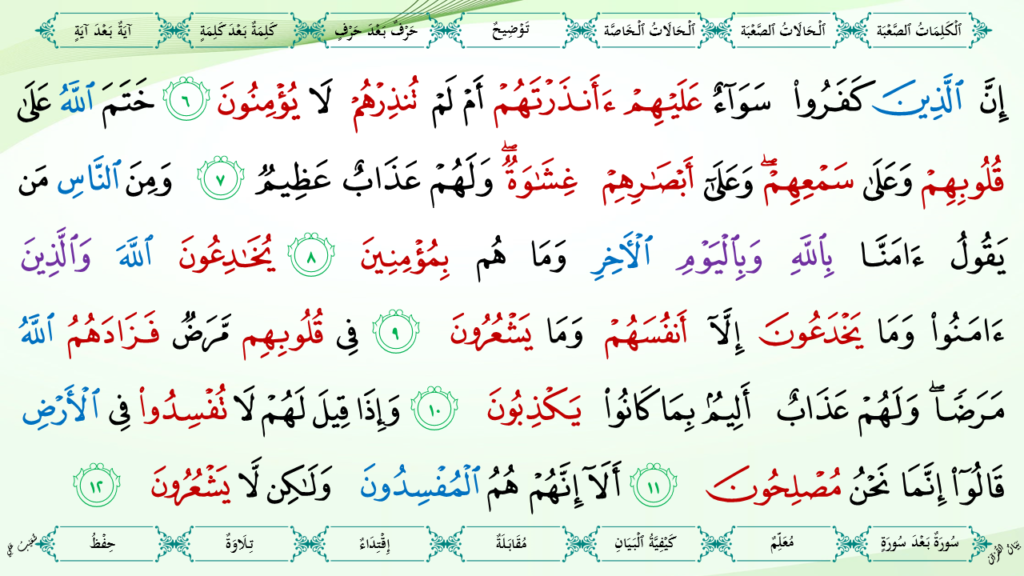 اَلْكَلِمَاتُ الصَّعْبَة اَلْحَالَاتُ الصَّعْبَة اَلْحَالَاتُ الْخَاصَّة تَوْضِيحٌ حَرْفٌ بَعْدَ حَرْفٍ كَلِمَةٌ بَعْدَ كَلِمَةٍ آيَةٌ بَعْدَ آيَةٍ
إِنَّ ٱلَّذِينَ كَفَرُوا۟ سَوَآءٌ عَلَيْهِمْ ءَأَنذَرْتَهُمْ أَمْ لَمْ تُنذِرْهُمْ لَا يُؤْمِنُونَ ٦ خَتَمَ ٱللَّهُ عَلَىٰ
قُلُوبِهِمْ وَعَلَىٰ سَمْعِهِمْ ۖ وَعَلَىٰٓ أَبْصَـٰرِهِمْ غِشَـٰوَةٌ ۖ وَلَهُمْ عَذَابٌ عَظِيمٌ ٧ وَمِنَ ٱلنَّاسِ مَن
يَقُولُ ءَامَنَّا بِٱللَّهِ وَبِٱلْيَوْمِ ٱلْـَٔاخِرِ وَمَا هُم بِمُؤْمِنِينَ ٨ يُخَـٰدِعُونَ ٱللَّهَ وَٱلَّذِينَ
ءَامَنُوا۟ وَمَا يَخْدَعُونَ إِلَّآ أَنفُسَهُمْ وَمَا يَشْعُرُونَ ٩ فِى قُلُوبِهِم مَّرَضٌ فَزَادَهُمُ ٱللَّهُ
مَرَضًا ۖ وَلَهُمْ عَذَابٌ أَلِيمٌۢ بِمَا كَانُوا۟ يَكْذِبُونَ ١٠ وَإِذَا قِيلَ لَهُمْ لَا تُفْسِدُوا۟ فِى ٱلْأَرْضِ
قَالُوٓا۟ إِنَّمَا نَحْنُ مُصْلِحُونَ ١١ أَلَآ إِنَّهُمْ هُمُ ٱلْمُفْسِدُونَ وَلَـٰكِن لَّا يَشْعُرُونَ ١٢
سُورَةٌ بَعْدَ سُورَةٍ مُعَلِّمٌ كَيْفِيَّةُ الْبَيَانِ مُقَابَلَةٌ إِقْتِدَاءٌ تِلَاوَةٌ حِفْظٌ